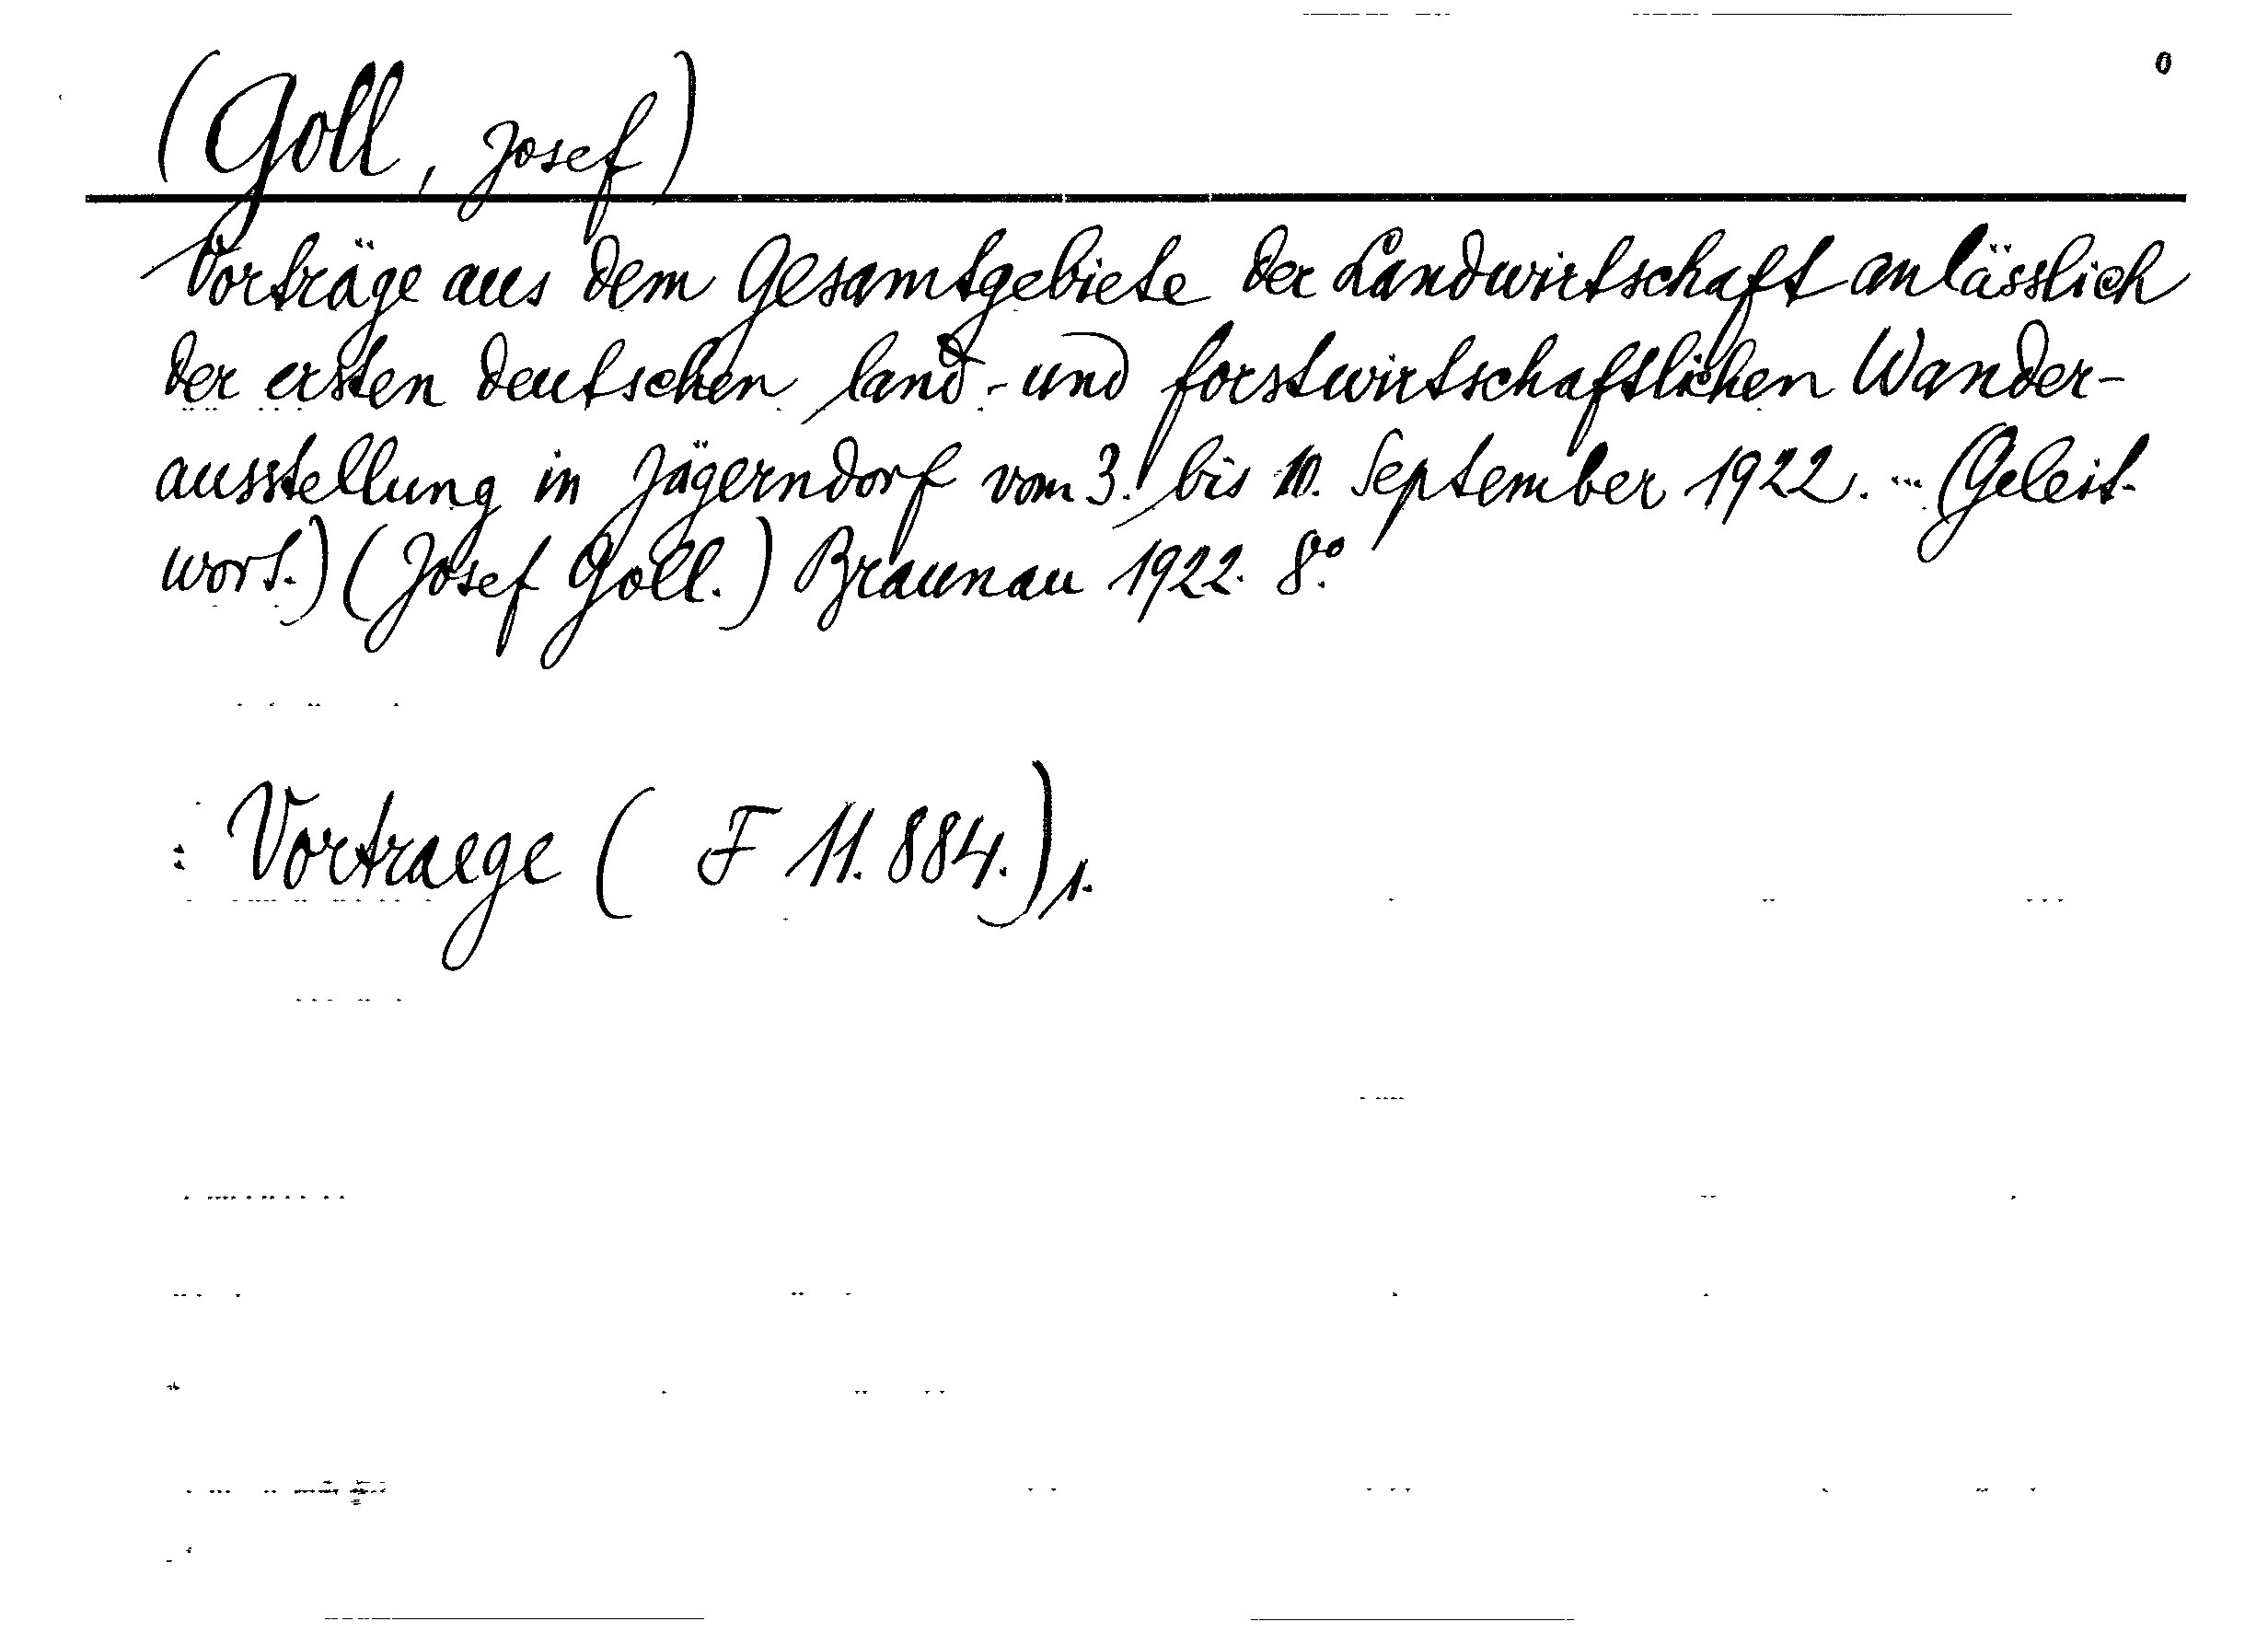 (Goll, Josef)
0
Vorträge aus dem Gesamtgebiete der Landwirtschaft anlässlich
der ersten deutschen land- und forstwirtschaftlichen Wander-
ausstellung in Jägerndorf vom 3. bis 10. September 1922. ... (Geleit-
wort.) (Josef Goll.) Braunau 1922. 8°.
: Vortraege ( F 11.884.) 1.